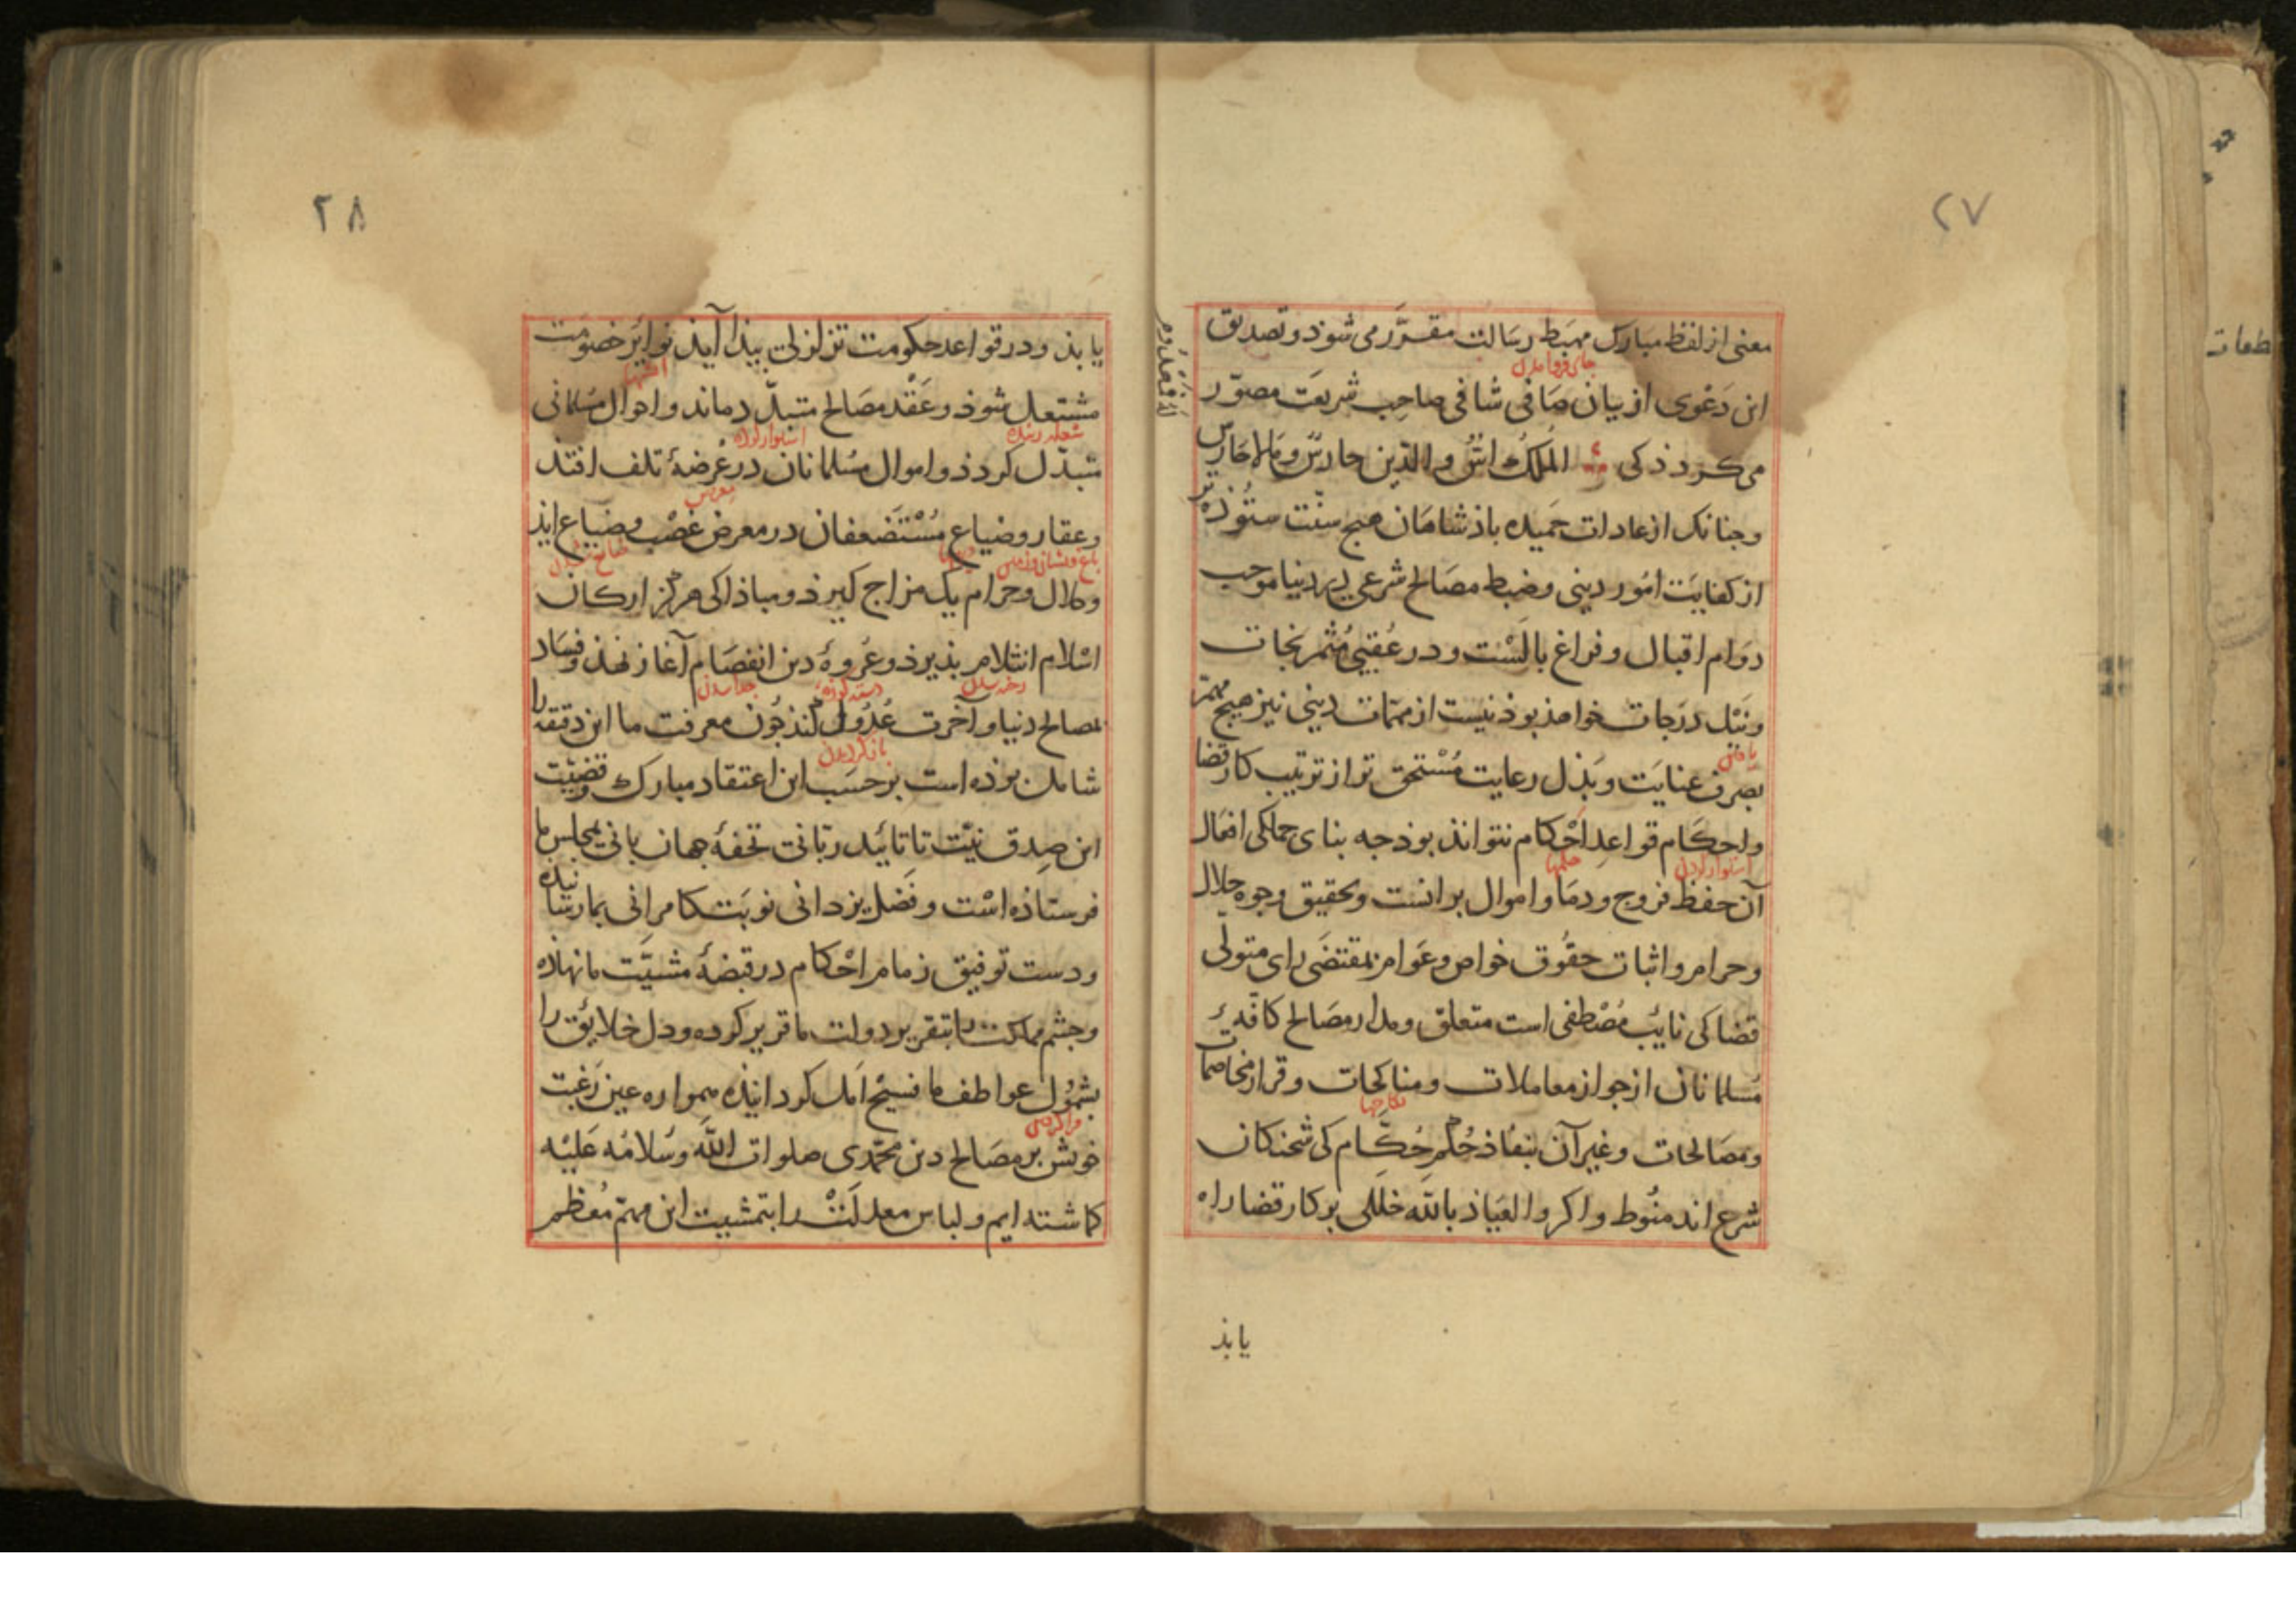 ۲۷
معنی از لفظ مبارک مهبط رسالت مقرّر می شوذ و تصدیق
جای فروامدن
این دَعْوی از بیان صَافی شافی صاحِب شریعَت مصوّر
می کردذ کی المُلکُ اسٌّ والدّین حارسٌ وَمَا لا حَارس
لَهُ فَمَهْدُوم
وجنانک از عادات حَمیده باذشاهان هیج سنّت ستُوذه تر
از کفایَت امُور دینی و ضبط مصَالح شرعی در دنیا موجب
دوَام اقبال و فراغ بالَسْت و در عُقبی مُثمر نجات
ونَیْل درَجات خواهذ بوذ نیست از مهمّات دینی نیز هیج مهمّ
یافتن
بصَرف عنایَت و بَذل رعایت مُسْتحق تر از ترتیب کار قضا
واحکَام قواعِد اَحْکام نتواند بوذ جه بنای جملکی افعَال
استوار کردن
حکمها
آن حفظ فروج و دمَا و اموال بر انست و تحقیق وجوه حلال
وحرام و اثبات حقُوق خواص و عَوام بمقتضَی رای متولّی
قضا کی نایبُ مُصْطفی است متعلق و مدار مصَالح کافّهٔ
مُسلمانان از جواز معاملات و مناکحات و قرار مخاصمات
نکاحها
ومصَالحات و غیر آن بنفاذ حُکْم حُکّام کی شحنکان
شرع اند منُوط و اکر والعیَاذ بالله خللی بر کار قضا راه
یابذ
۲۸
یابذ و در قواعد حکومت تزلزلی بیذا آیذ نوایر خصُومَت
آتشها
مشتعل شوذ و عَقْد مصَالح متبدّد ماند و احوال مسُلمانی
شعله زننده
استوار کرده
متبدّل کردذ و اموال مسُلمانان در عُرضهٔ تلف افتذ
وعقار و ضیاع مُسْتَضعفان در معرض غصْب و ضیاع ایذ
دیهها
ضایع شدن
وحلال و حرام یک مزاج کیرذ و مباذا کی هرکز ارکان
اسْلام انثلام بذیرذ و عُروهٔ دین انفصَام آغاز نهذ و فسَاد
رخنه شدن
جدا شدن
بمصالح دنیا و آخرت عُدُول کنذ جُون معرفت ما این دقیقه را
باز کردیدن
شامل بوذه است بر حسَب این اعتقاد مبارک و قضیّت
این صِدق نیّت تا تائید ربّانی تحفهٔ جهان بانی بمجلس ما
فرستاذه اسْت و فَضل یزدانی نوبَت کامرانی بما رسانیده
ودست توفیق زمام احْکام در قبضهٔ مشیَّت ما نهاده
وجشم مملکت را بتقریر دولت ما قریر کرده و دل خلایق را
بشمُول عواطف ما فسیح اَمل کردانیذه همواره عین رَغبت
خویش بر مصَالح دین محمّدی صلوات الله وسَلامُه عَلیْه
کماشته ایم و لباس معدلَتْ را بتمشیت این مهمّ مُعظم